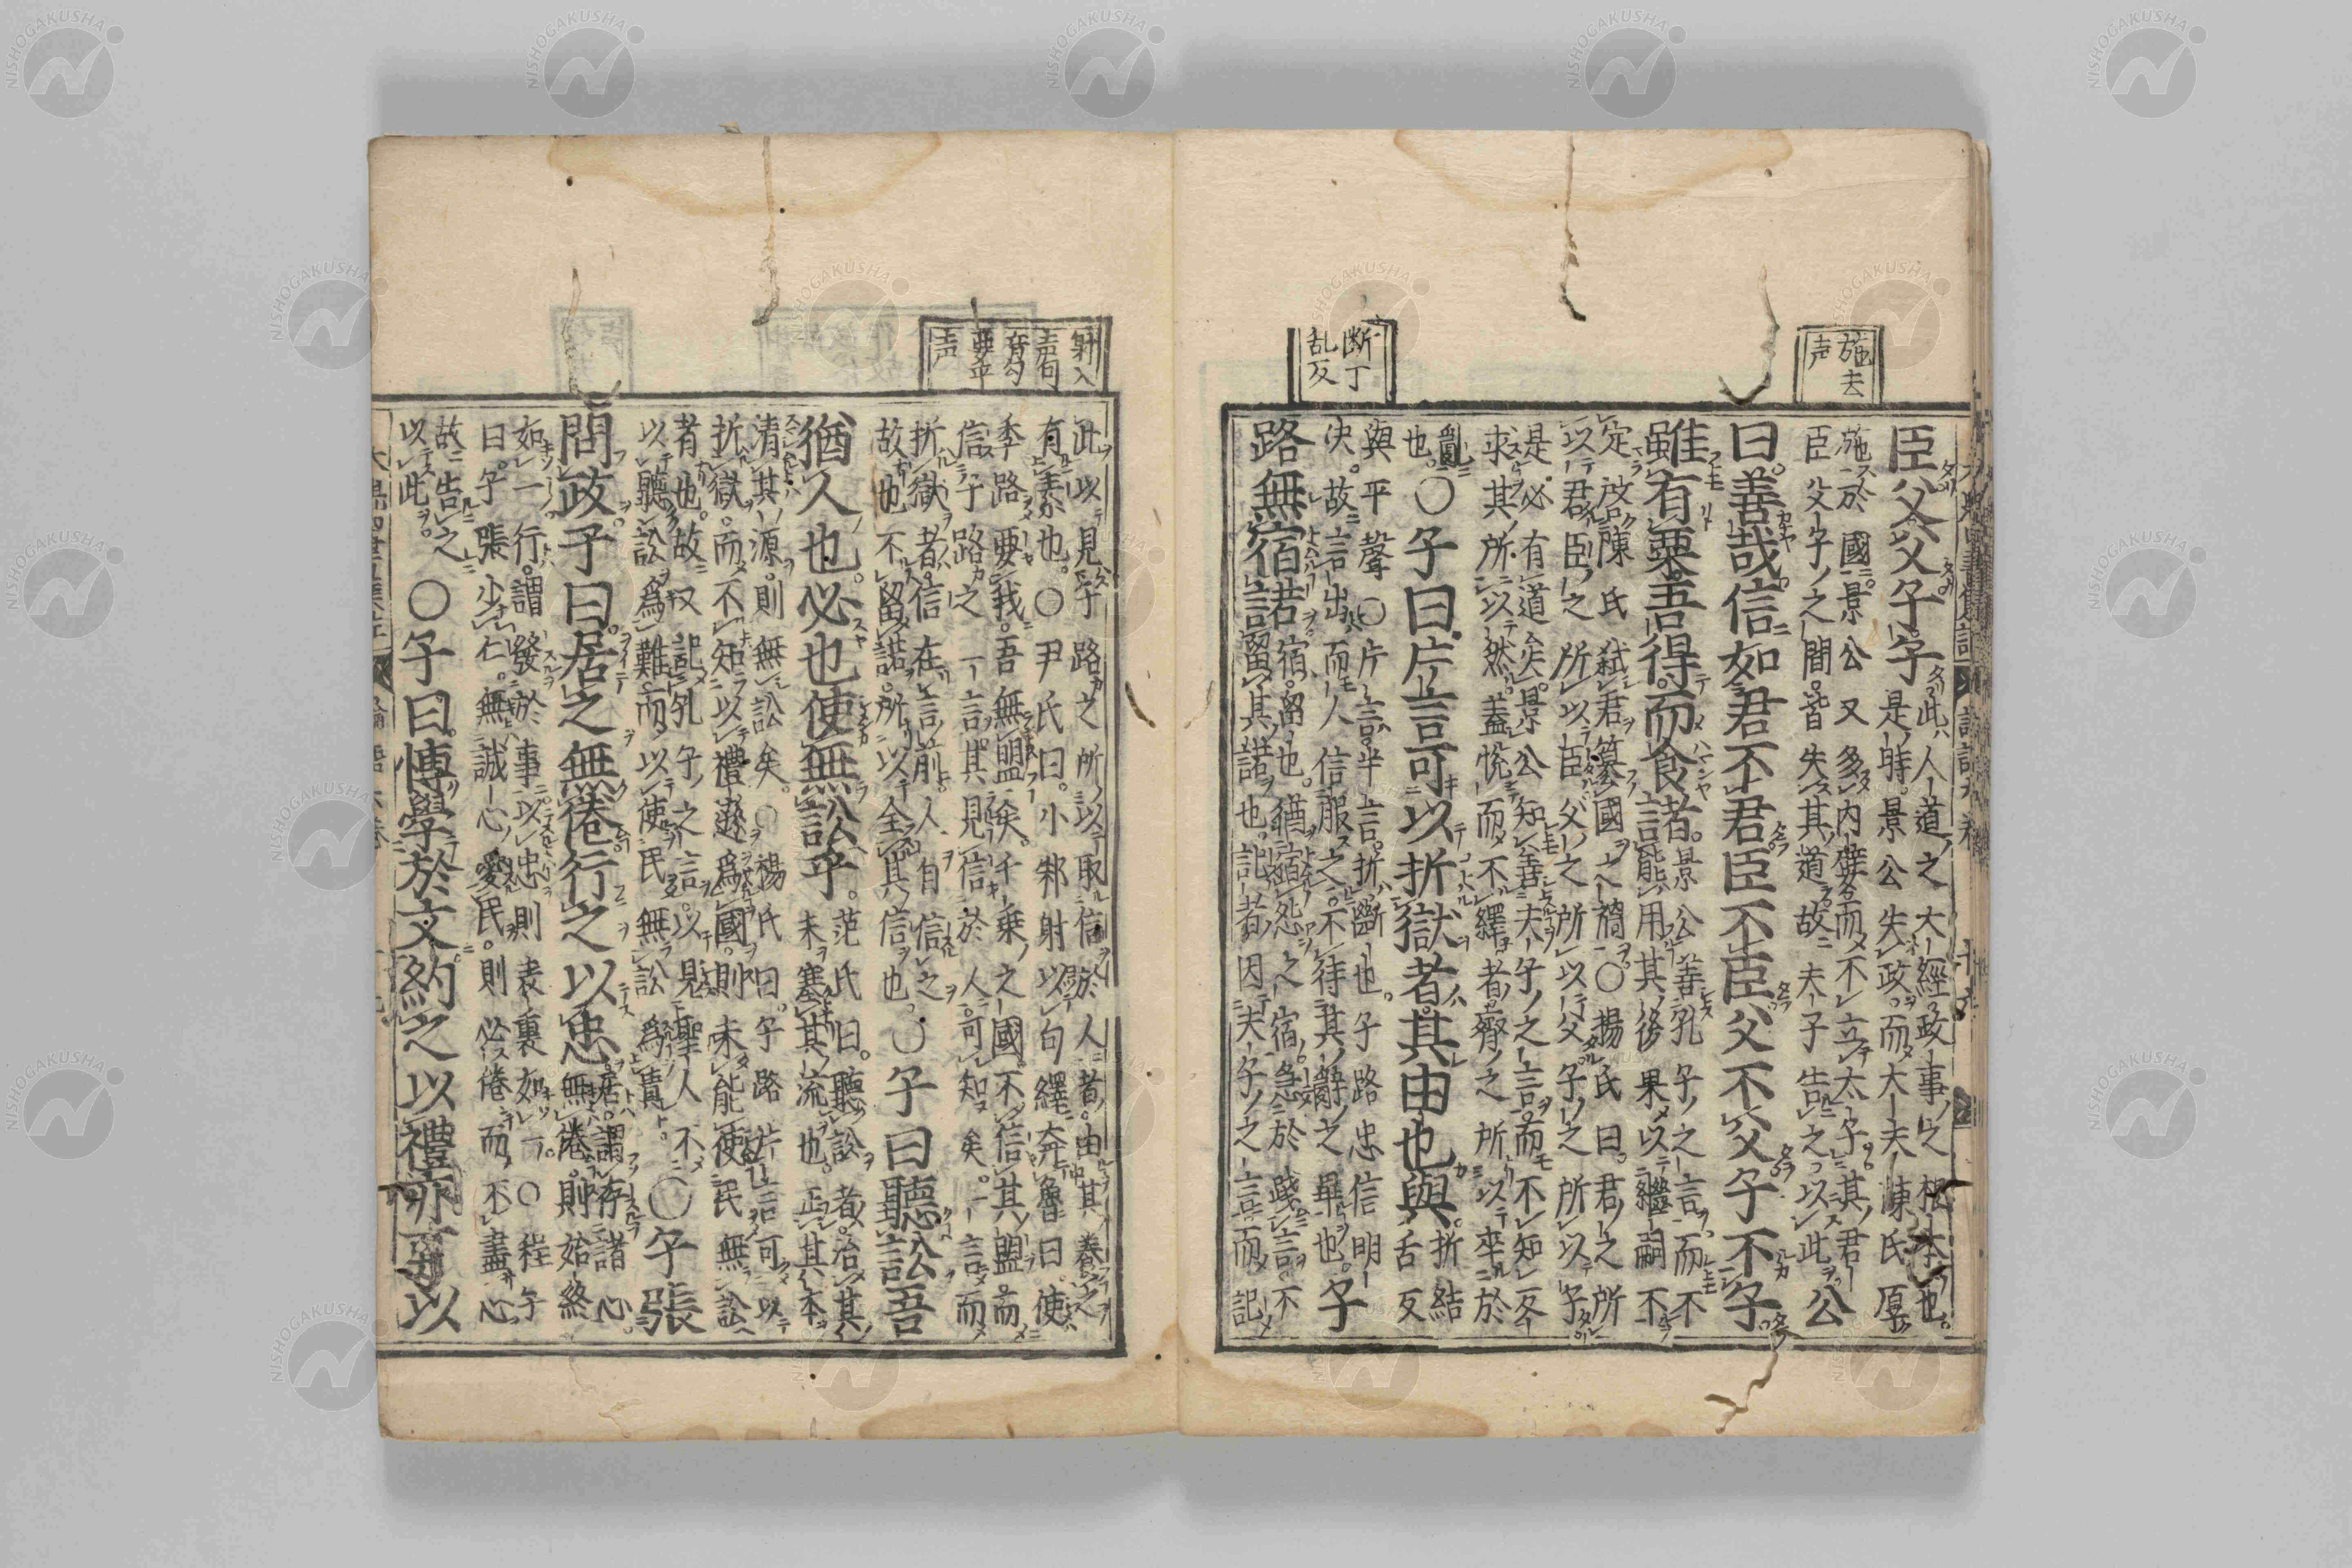 施去
声
断丁
乱反
臣父父子子
此人道之大經政事之根本也。
是時。景公失政。而大夫陳氏厚
施於國。景公又多內嬖而不立太子。其君
臣父子之間。皆失其道。故夫子告之以此
公
曰。善哉。信如君不君臣不臣父不父子不子
雖有粟。吾得而食諸。
景公善孔子之言而不
能用。其後果以繼嗣不
定。啓陳氏弑君簒國之禍○揚氏曰。君之所
以君臣之所以臣父之所以父子之所以子
是必有道矣。景公知善夫子之言。而不知反
求其所以然。蓋悅而不繹者。齊之所以卒於
亂
也。
○子曰片言可以折獄者。其由也與。
折結
舌反
與平聲○片言。半言。折斷也。子路忠信明
决。故言出而人信服之。不待其辭之畢也。
子
路無宿諾
宿。留也。猶宿怨之宿。急於踐言。不
留其諾也。記者。因夫子之言。而記
射入
声句
音勾
要平
声
此以見子路之所以取信於人者。由其養之
有素也。○尹氏曰。小邾射以句繹奔魯曰。使
季路要我。吾無盟矣。千乘之國。不信其盟。而
信子路之一言。其見信於人。可知矣。一言而
折獄者。信在言前。人自信之
故也不留諾。所以全其信也。
○子曰聽訟吾
猶人也。必也使無訟乎。
范氏曰。聽訟者。治其
末塞其流也。正其本
清其源。則無訟矣。○楊氏曰。子路片言可以
折獄。而不知以禮遜爲國。則未能使民無訟
者也。故又記孔子之言。以見聖人不
以聽訟爲難。而以使民無訟爲貴。
○子張
問政子曰。居之無倦行之以忠
居。謂存諸心。
無倦。則始終
如一。行。謂發於事。以忠則表裏如一。○程子
曰。子張少仁。無誠心愛民。則必倦而不盡心
故告之
以此。
○子曰。博學於文。約之以禮。亦可以